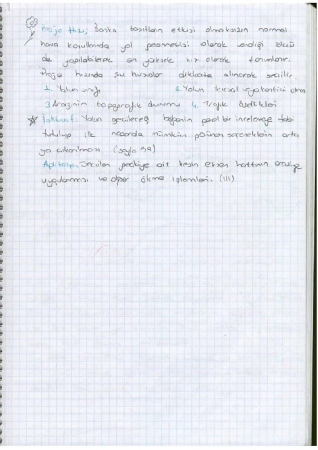 Proje Hızı; Başka taşıtların etkisi olmaksızın normal
hava koşullarında yol geometrisi olarak verdiği ölçü
de yapılabilecek en yüksek hız olarak tanımlanır.
Proje hızında şu hususlar dikkate alınarak seçilir.
1. Yolun sınıfı 2. Yolun kırsal veya kentiçi olma
3. Arazinin topografik durumu 4. Trafik özellikleri
İstikşaf: Yolun geçirileceği bölgenin genel bir incelemeye tabi
tutulup ile mümkün seçeneklerin orta
ya çıkarılması (sayfa 59)
Aplikasyon: Seçilen geçkiye ait kesin eksen hattının araziye
uygulanması ve diğer ölçme işlemleri. (111)